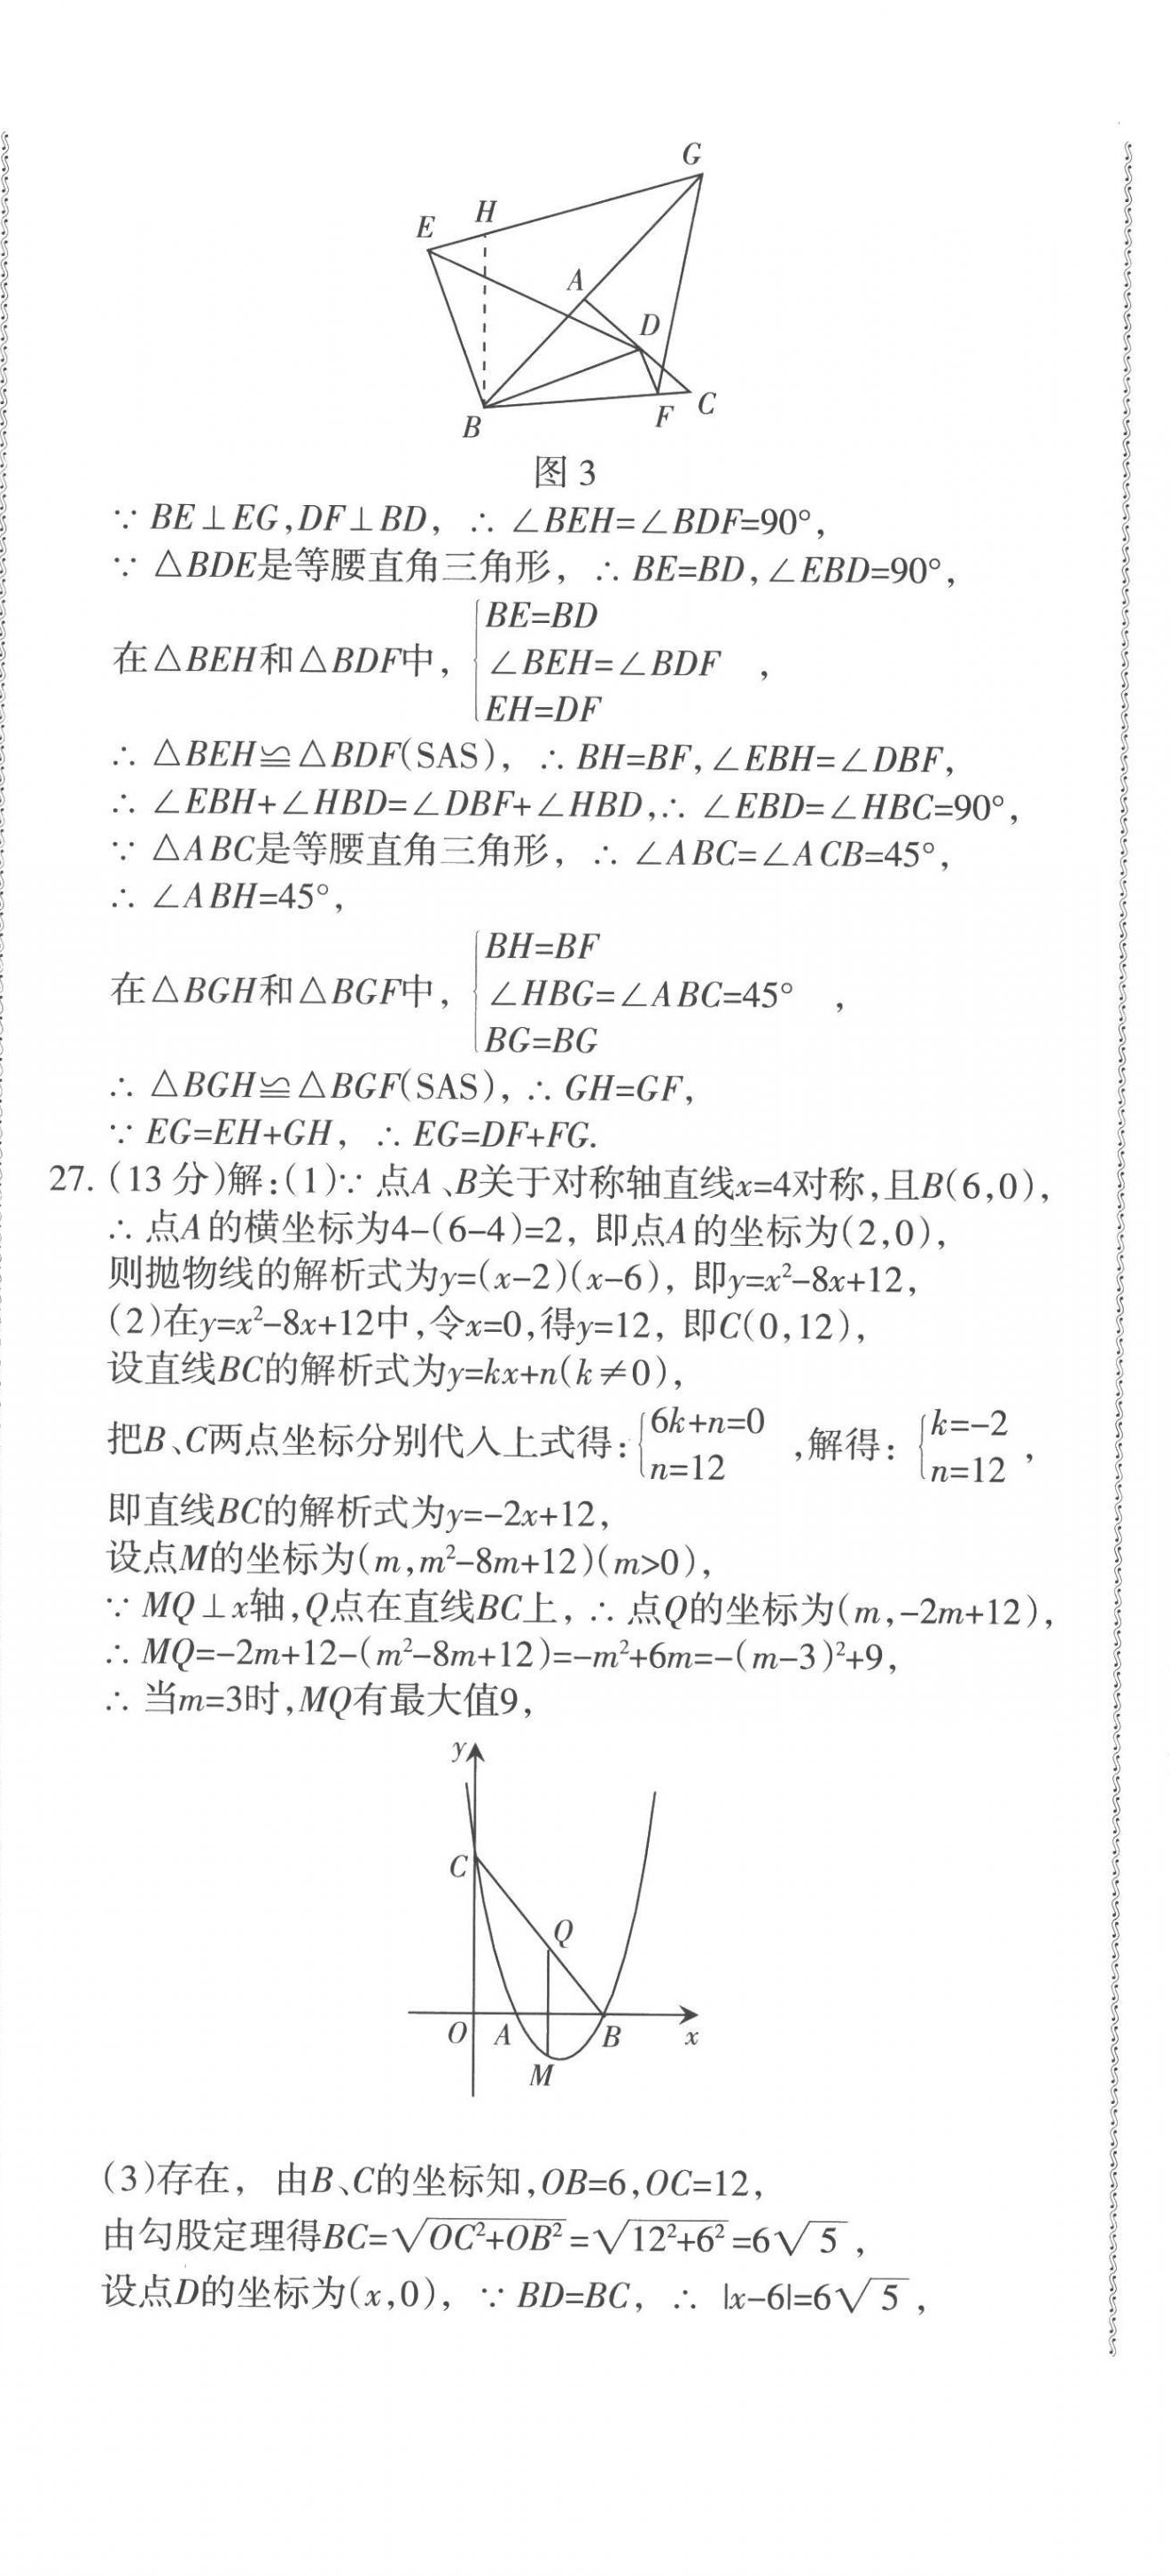 G
H
E
A
D
B
F
C
图 3
∵ BE⊥EG,DF⊥BD, ∴ ∠BEH=∠BDF=90°,
∵ △BDE是等腰直角三角形, ∴ BE=BD,∠EBD=90°,
BE=BD
在△BEH和△BDF中, { ∠BEH=∠BDF ,
EH=DF
∴ △BEH≌△BDF(SAS), ∴ BH=BF,∠EBH=∠DBF,
∴ ∠EBH+∠HBD=∠DBF+∠HBD,∴ ∠EBD=∠HBC=90°,
∵ △ABC是等腰直角三角形, ∴ ∠ABC=∠ACB=45°,
∴ ∠ABH=45°,
BH=BF
在△BGH和△BGF中, { ∠HBG=∠ABC=45° ,
BG=BG
∴ △BGH≌△BGF(SAS), ∴ GH=GF,
∵ EG=EH+GH, ∴ EG=DF+FG.
27. (13 分)解:(1)∵ 点A、B关于对称轴直线x=4对称,且B(6,0),
∴ 点A的横坐标为4-(6-4)=2, 即点A的坐标为(2,0),
则抛物线的解析式为y=(x-2)(x-6), 即y=x²-8x+12,
(2)在y=x²-8x+12中,令x=0,得y=12, 即C(0,12),
设直线BC的解析式为y=kx+n(k≠0),
把B、C两点坐标分别代入上式得: { 6k+n=0 n=12 ,解得: { k=-2 n=12 ,
即直线BC的解析式为y=-2x+12,
设点M的坐标为(m,m²-8m+12)(m>0),
∵ MQ⊥x轴,Q点在直线BC上, ∴ 点Q的坐标为(m,-2m+12),
∴ MQ=-2m+12-(m²-8m+12)=-m²+6m=-(m-3)²+9,
∴ 当m=3时,MQ有最大值9,
y
C
Q
O A B x
M
(3)存在, 由B、C的坐标知,OB=6,OC=12,
由勾股定理得BC=√OC²+OB²=√12²+6²=6√5,
设点D的坐标为(x,0), ∵ BD=BC, ∴ |x-6|=6√5,